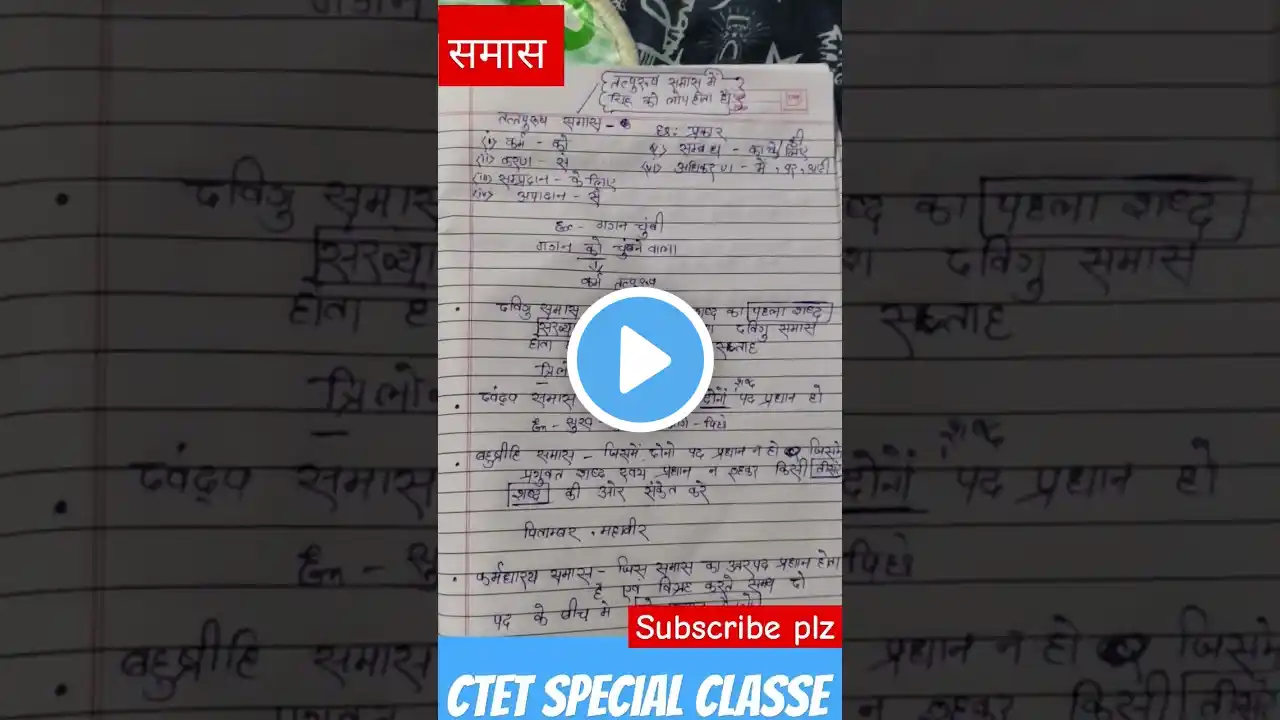 समास
तत्पुरुष समास में
चिह्न को लोप होता है
तत्पुरुष समास - छः प्रकार
(i) कर्म - को
(ii) करण - से
(iii) सम्प्रदान - के लिए
(iv) अपादान - से
(v) सम्बंध - का के की
(vi) अधिकरण - मे, पर,
गगन चुंबी
गगन को चुंबने वाला
कर्म तत्पुरुष
दविगु समास शब्द का पहला शब्द
संख्या दविगु समास
होता सप्ताह
द्वंद्व समास दोनों शब्द पद प्रधान हो
सुख - पिछे
बहुव्रीहि समास - जिसमें दोनो पद प्रधान न हो जिसमे
प्रयुक्त शब्द स्वयं प्रधान न रहकर किसी तीसरे
शब्द की ओर संकेत करे
पिताम्बर, महावीर
कर्मधारय समास - जिस समास का प्रधान होता
है एवं विग्रह करते समय दो
पद के बीच मे
Subscribe plz
CTET SPECIAL CLASSE